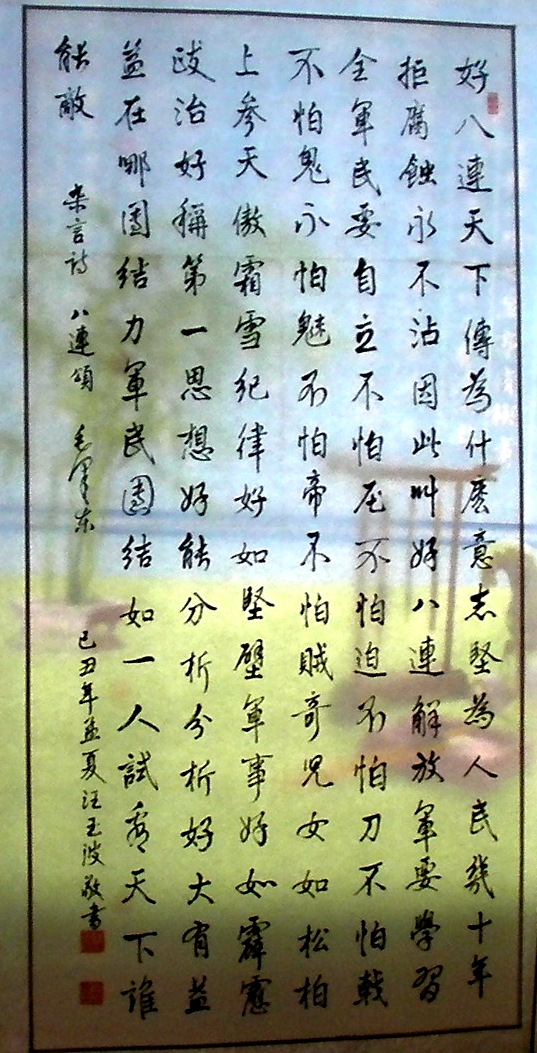 好八連天下傳為什麽意志堅為人民幾十年
拒腐蝕永不沾因此叫好八連解放軍要學習
全軍民要自立不怕压不怕迫不怕刀不怕戟
不怕鬼不怕魅不怕帝不怕賊奇児女如松柏
上參天傲霜雪紀律好如堅壁軍事好如霹靂
政治好稱第一思想好能分析分析好大有益
益在哪團結力軍民團結如一人試看天下誰
能敵 杂言詩 八連頌 毛澤东 己丑年孟夏汪玉波敬書